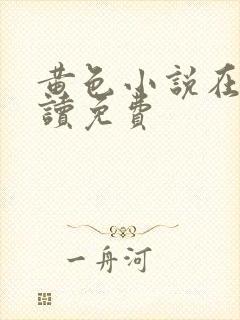 黄色小说在
讀免費
一舟河